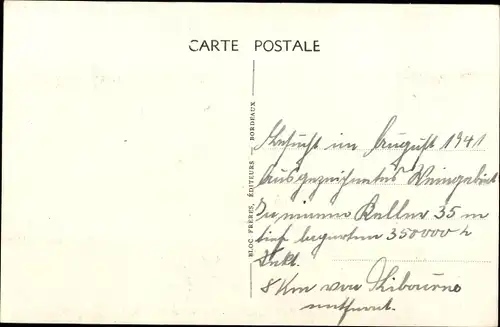 CARTE POSTALE
BLOC FRÈRES, ÉDITEURS - BORDEAUX
Besucht im August 1941
Ausgezeichnetes Weingebiet
In einem Keller 35 m
tief lagerten 350000 h
8 Km von Libourne
entfernt.